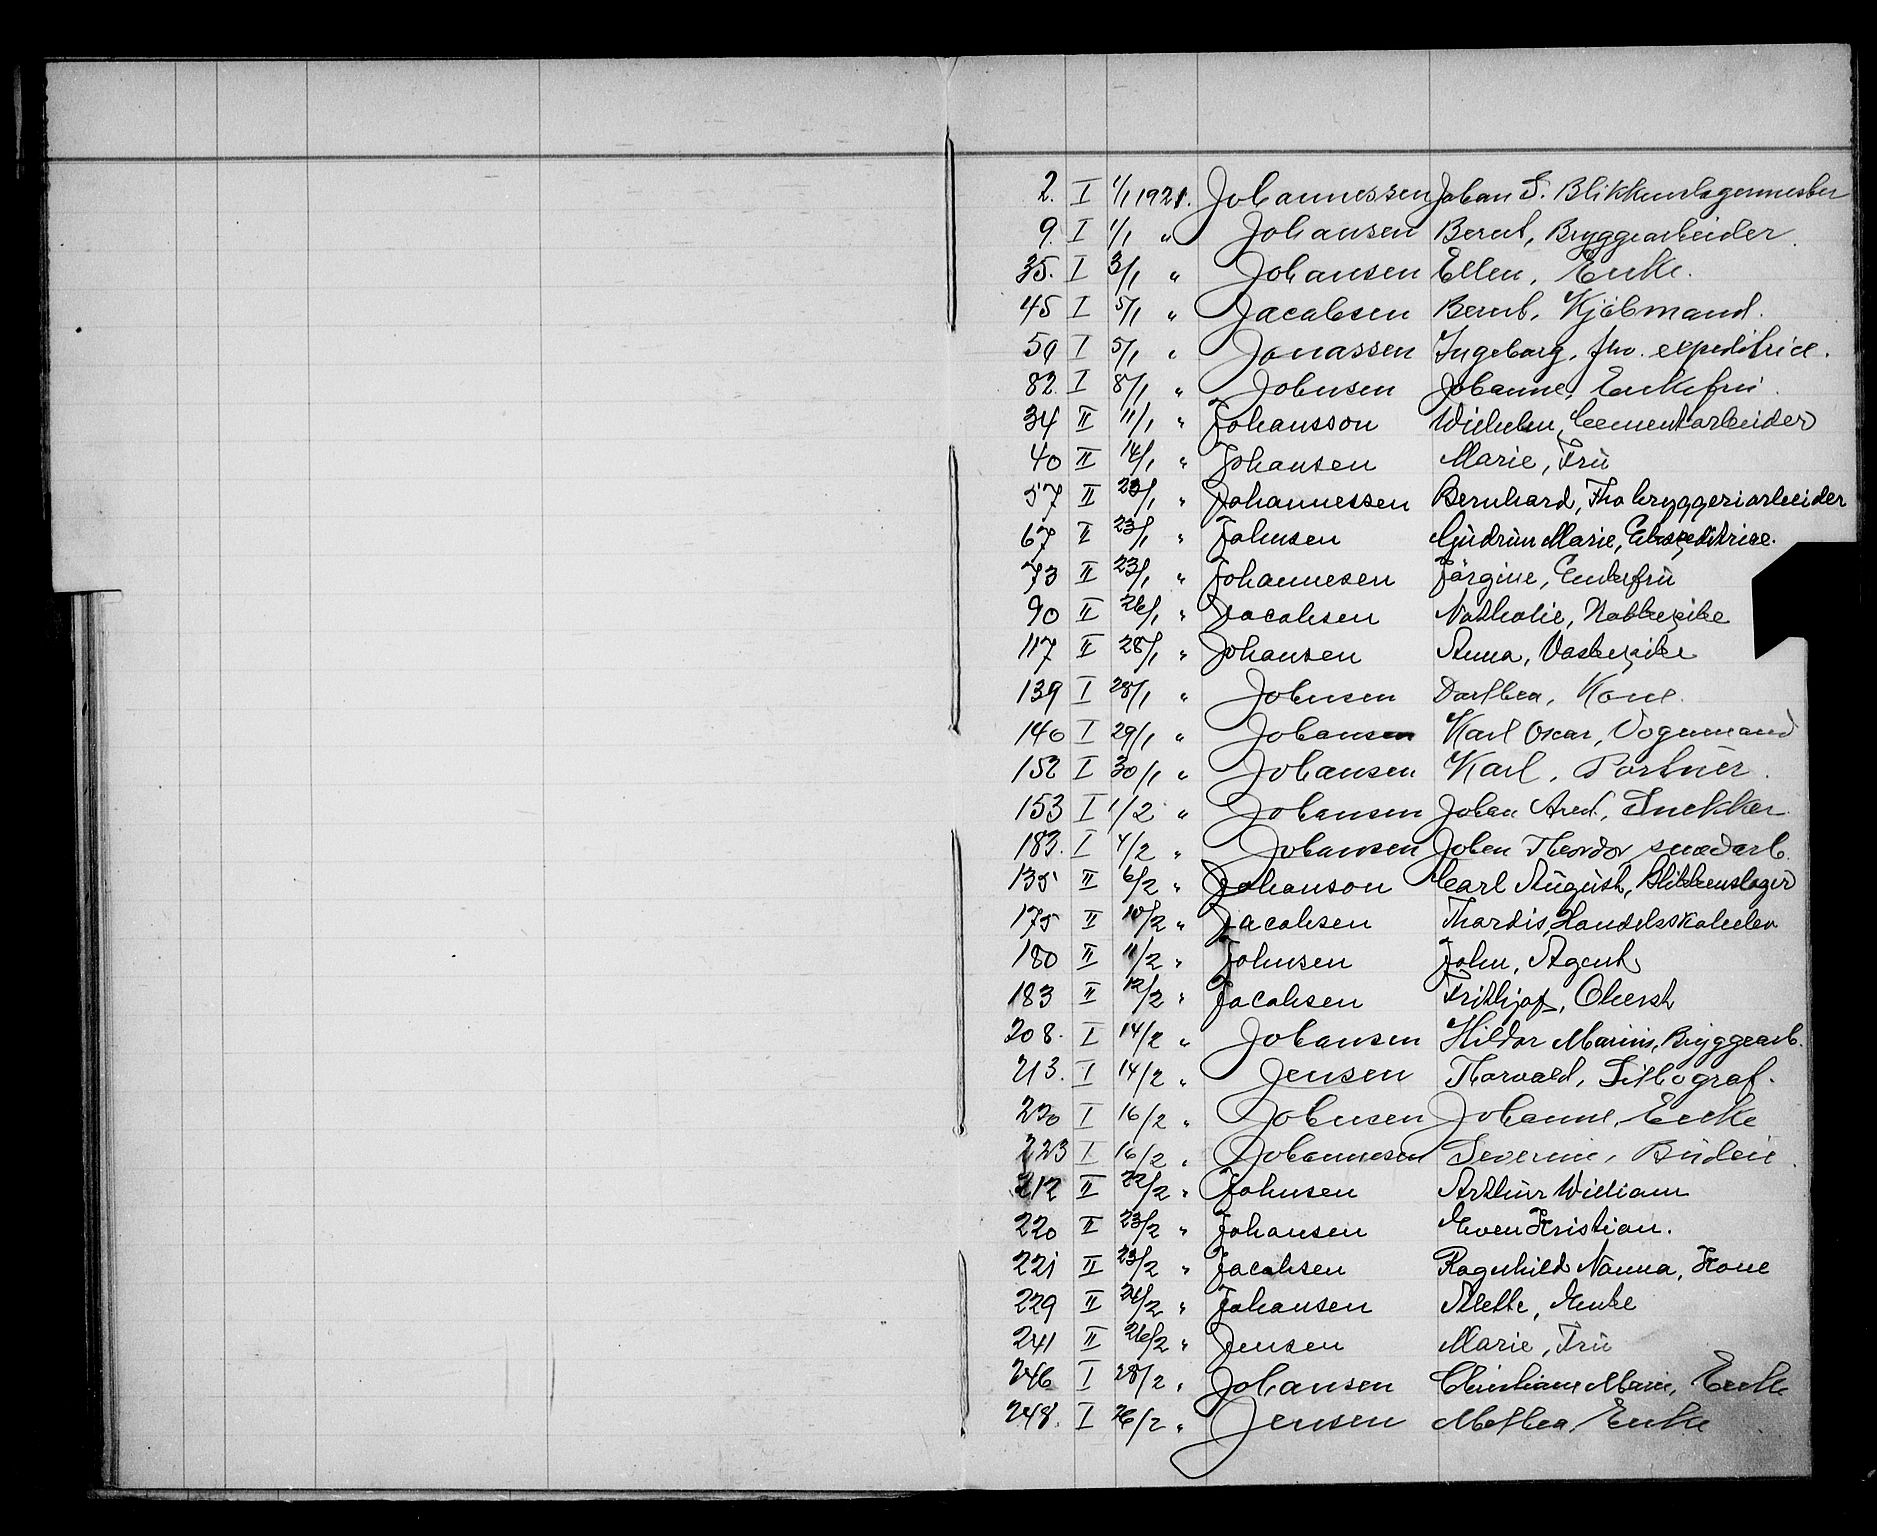 2. I 1/1 1921. Johannessen Johan S. Blikkenslagermester
9. I 1/1 " Johansen Bernt, Bryggearbeider.
35. I 3/1 " Johansen Ellen, Enke.
45 I 5/1 " Jacobsen Bernt, Kjøbmand.
59 I 5/1 " Jonassen Ingeborg, fhv. expeditrice.
82. I 8/1 " Johnsen Johanne, Enkefru.
34 II 11/1 " Johansson Wilhelm, Cementarbeider
40 II 14/1 " Johansen Marie, Frü
57 II 23/1 " Johannessen Bernhard, Fhv bryggeriarbeider
67 II 23/1 " Johnsen Güdrün Marie, Ekspeditrice.
73 II 23/1 " Johannesen Jörgine, Enkefrü
90 II 26/1 " Jacobsen Nathalie,
117 II 28/1 " Johansen Anna, Vaskepike
139 I 28/1 " Johnsen Dorthea, Kone.
146 I 29/1 " Johansen Karl Oscar, Vognmand
152 I 30/1 " Johansen Karl, Portner.
153 I 1/2 " Johansen Johan Ared, Snekker
183. I 4/2 " Johansen Johan Theodor smedarb.
135 II 6/2 " Johanson Carl Aügüst, Blikkenslager
175 II 10/2 " Jacobsen Thordis, Handelsskoleelev
180 II 11/2 " Johnsen John, Agent
183 II 12/2 " Jacobsen Frithjof, Oberst
208. I 14/2 " Johansen Hildor Marius, Bryggearb.
213. I 14/2 " Jensen Thorvald, Lithograf.
220 I 16/2 " Johnsen Johanne, Enke
223 I 16/2 " Johannesen Severine, Büdeie.
212 II 22/2 " Johnsen Arthür William
220 II 23/2 " Johansen Even Kristian.
221 II 23/2 " Jacobsen Ragnhild Nanna, Kone
229 II 24/2 " Johansen Alette, Enke
241 II 26/2 " Jensen Marie, Frü
246 I 28/2 " Johansen Christiane Marie, Enke
248. I 26/2 " Jensen Methea, Enke